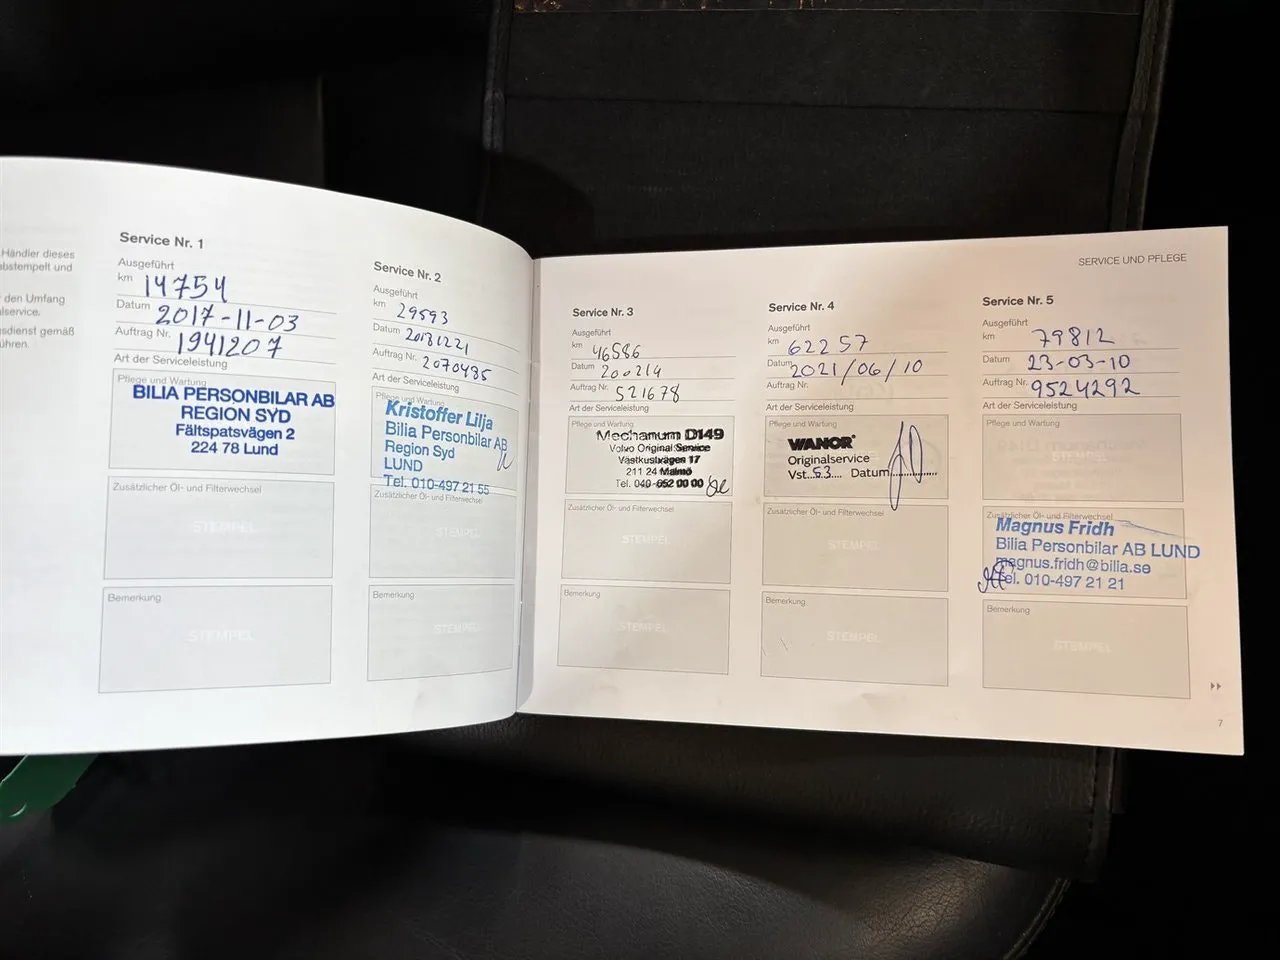 Händler dieses
bstempelt und
den Umfang
lservice.
sdienst gemäß
ühren.
Service Nr. 1
Ausgeführt
km 14754
Datum 2017-11-03
Auftrag Nr. 1941207
Art der Serviceleistung
Pflege und Wartung
BILIA PERSONBILAR AB
REGION SYD
Fältspatsvägen 2
224 78 Lund
Zusätzlicher Öl- und Filterwechsel
STEMPEL
Bemerkung
STEMPEL
Service Nr. 2
Ausgeführt
km 29593
Datum 20181221
Auftrag Nr. 2070485
Art der Serviceleistung
Pflege und Wartung
Kristoffer Lilja
Bilia Personbilar AB
Region Syd
LUND
Tel. 010-497 21 55
Zusätzlicher Öl- und Filterwechsel
STEMPEL
Bemerkung
STEMPEL
SERVICE UND PFLEGE
Service Nr. 3
Ausgeführt
km 46586
Datum 200214
Auftrag Nr. 521678
Art der Serviceleistung
Pflege und Wartung
Mechanum D149
Volvo Original Service
Västkustvägen 17
211 24 Malmö
Tel. 040-652 00 00
Zusätzlicher Öl- und Filterwechsel
STEMPEL
Bemerkung
STEMPEL
Service Nr. 4
Ausgeführt
km 62257
Datum 2021/06/10
Auftrag Nr.
Art der Serviceleistung
Pflege und Wartung
WANOR
Originalservice
Vst...53.... Datum..............
Zusätzlicher Öl- und Filterwechsel
STEMPEL
Bemerkung
STEMPEL
Service Nr. 5
Ausgeführt
km 79812
Datum 23-03-10
Auftrag Nr. 9524292
Art der Serviceleistung
Pflege und Wartung
STEMPEL
Zusätzlicher Öl- und Filterwechsel
Magnus Fridh
Bilia Personbilar AB LUND
magnus.fridh@bilia.se
Tel. 010-497 21 21
Bemerkung
STEMPEL
7